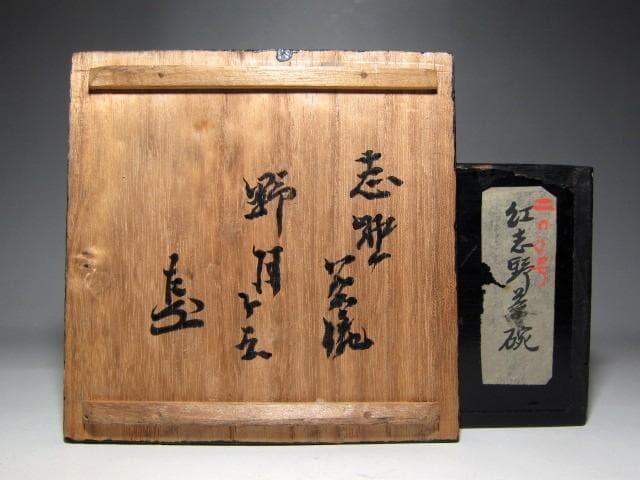 二〇〇号
紅志野茶碗
志野茶碗
野月ト云